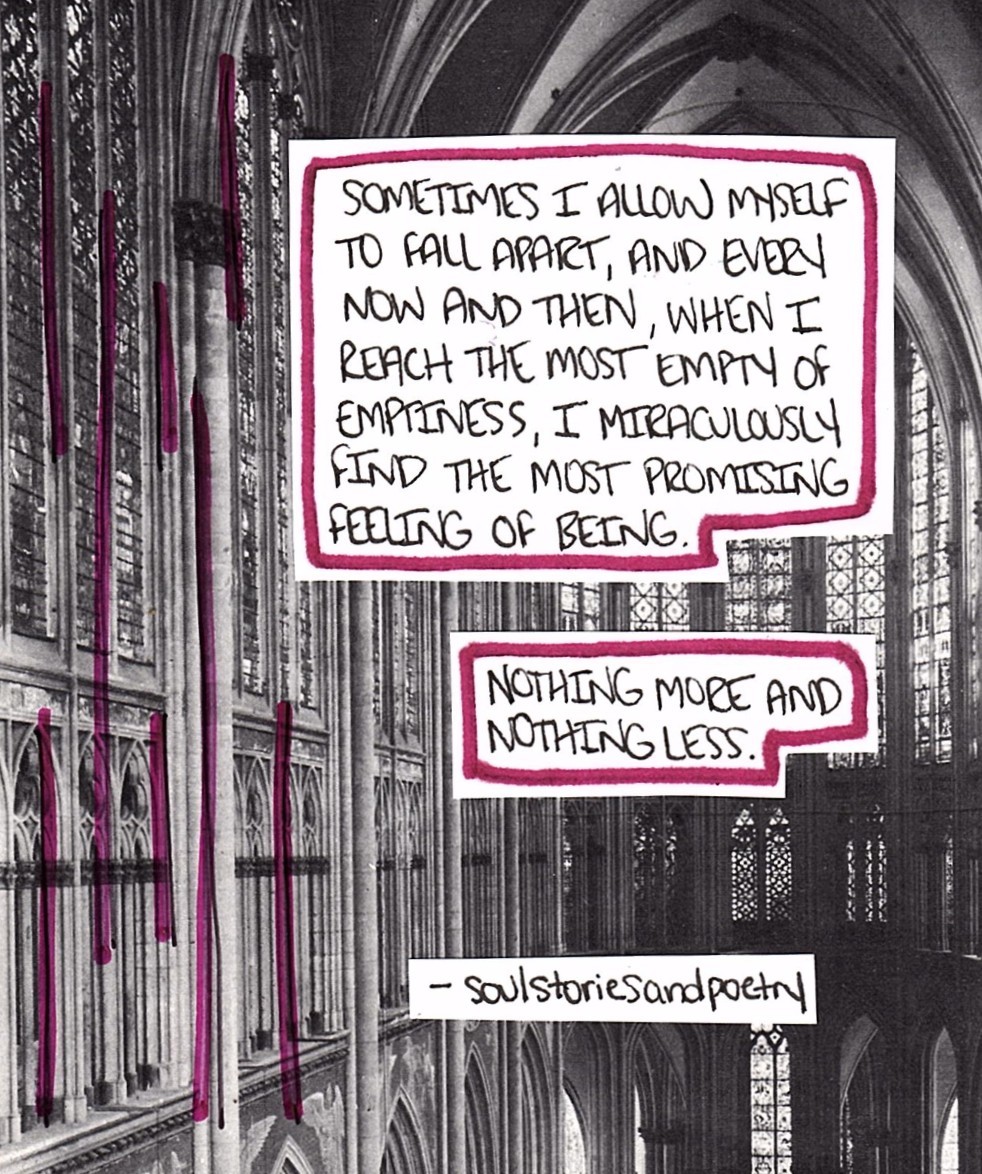 SOMETIMES I ALLOW MYSELF
TO FALL APART, AND EVERY
NOW AND THEN, WHEN I
REACH THE MOST EMPTY OF
EMPTINESS, I MIRACULOUSLY
FIND THE MOST PROMISING
FEELING OF BEING.
NOTHING MORE AND
NOTHING LESS.
- soulstoriesandpoetry